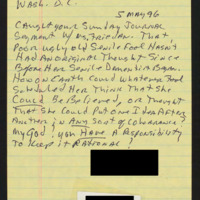 WASH. D.C.
5 MAY 96
CAUGHT YOUR SUNDAY JOURNAL
SEGMENT W/ MS. FRIEDAN. THAT
POOR UGLY OLD SENILE FOOL HASN'T
HAD AN ORIGINAL THOUGHT SINCE
BEFORE HAVE SENILE DEMENTIA BEGAN.
HOW ON EARTH COULD WHATEVER FOOL
SCHEDULED HER THINK THAT SHE
COULD BE BELIEVED, OR THOUGHT
THAT SHE COULD PUT ONE IDEA AFTER
ANOTHER IN ANY SORT OF COHERANCE
MY GOD! YOU HAVE A RESPONSIBILITY
TO KEEP IT RATIONAL!